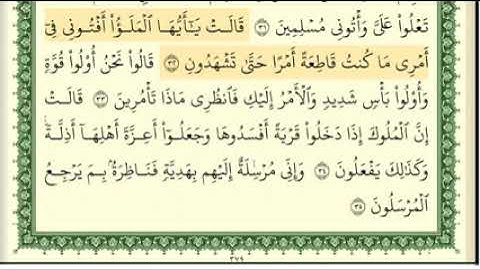 تَعْلُوا۟ عَلَىَّ وَأْتُونِى مُسْلِمِينَ ٣١ قَالَتْ يَـٰٓأَيُّهَا ٱلْمَلَؤُا۟ أَفْتُونِى فِىٓ
أَمْرِى مَا كُنتُ قَاطِعَةً أَمْرًا حَتَّىٰ تَشْهَدُونِ ٣٢ قَالُوا۟ نَحْنُ أُو۟لُوا۟ قُوَّةٍ
وَأُو۟لُوا۟ بَأْسٍ شَدِيدٍ وَٱلْأَمْرُ إِلَيْكِ فَٱنظُرِى مَاذَا تَأْمُرِينَ ٣٣ قَالَتْ
إِنَّ ٱلْمُلُوكَ إِذَا دَخَلُوا۟ قَرْيَةً أَفْسَدُوهَا وَجَعَلُوٓا۟ أَعِزَّةَ أَهْلِهَآ أَذِلَّةً ۖ
وَكَذَٰلِكَ يَفْعَلُونَ ٣٤ وَإِنِّى مُرْسِلَةٌ إِلَيْهِم بِهَدِيَّةٍ فَنَاظِرَةٌۢ بِمَ يَرْجِعُ
ٱلْمُرْسَلُونَ ٣٥
٣٧٩